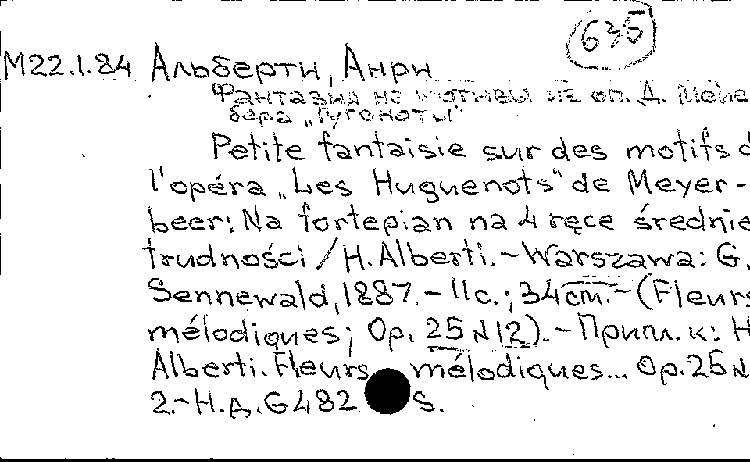 635
M22.1.84 Альберти, Анри
Фантазия на мотивы из оп. Д. Мейе
бера „Гугеноты"
Petite fantaisie sur des motifs d
l'opéra „Les Huguenots" de Meyer-
beer: Na fortepian na 4 ręce średnie
trudności / H. Alberti. - Warszawa: G.
Sennewald, 1887. - 11 с.; 34 cm. - (Fleurs
mélodiques; Op. 25 N 12). - Припл. к: H
Alberti. Fleurs mélodiques... Op. 25 N
2. - Н.д. G 482 S.